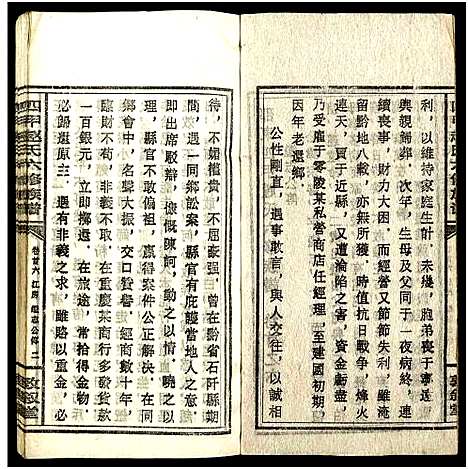 利，以維持家庭生計，未幾，胞弟喪于事，遂
輿親歸葬，次年，生母及父同于一夜病終，連
續喪事，財力大困，而經營又節節失利，淹滯
留黔地八載，亦無所獲，時值抗日戰爭，烽火
連天，賈于近縣，又遭淪陷之害，資金虧盡，
乃受雇于零陵某私營商店任經理，至建國初期，
因年老還鄉。
公性剛直，遇事敢言，與人交往，以誠相
待，不媚權貴，不屈豪强，曾在黔省石阡縣期
間，遇一同鄉訟案，縣官有庇護當地人之意，
即出席駁辯，慷慨陳詞，動之以情，曉之以
理，縣官不敢輕侮，贏得案件公正解決，在同
鄉中，名聲大振，交口贊譽。經商數十年，
重于然諾，取信于民，東某商行多發貨款
一百銀元，立即退還，在旅途，常拾得金物，
必歸還原主。遇有非義之求，雖或重金，必
四甲趙氏六修族譜
卷首六 江房
二
敦叙堂